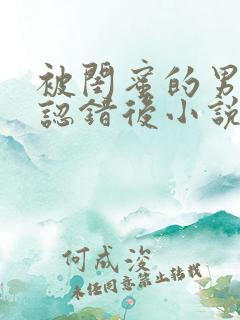 被閨蜜的男
認錯後小說
何成浚
未经同意禁止转载